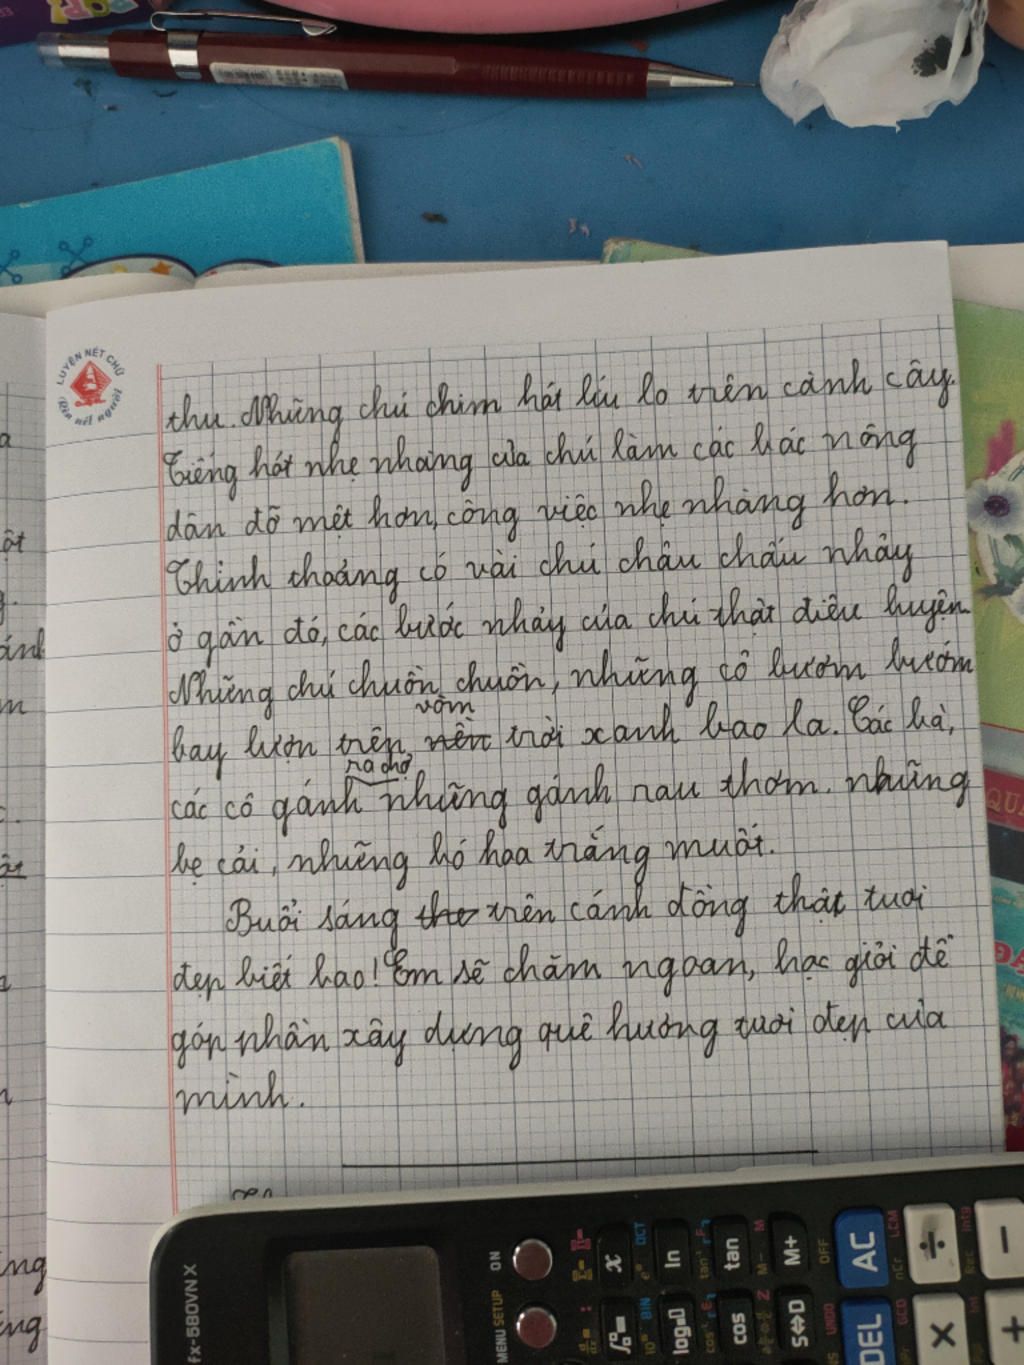 LUYỆN NÉT CHỮ
Rèn nết người
thu. Những chú chim hót líu lo trên cành cây.
Tiếng hót nhẹ nhàng của chú làm các bác nông
dân đỡ mệt hơn, công việc nhẹ nhàng hơn.
Thỉnh thoảng có vài chú châu chấu nhảy
ở gần đó, các bước nhảy của chú thật điêu luyện.
Những chú chuồn chuồn, những cô bươm bướm
vòm
bay lượn trên nền trời xanh bao la. Các bà,
ra chợ
các cô gánh những gánh rau thơm. những
bẹ cải, những bó hoa trắng muốt.
Buổi sáng the trên cánh đồng thật tươi
đẹp biết bao! Em sẽ chăm ngoan, học giỏi để
góp phần xây dựng quê hương tươi đẹp của
mình.
fx-580VN X
ON
MENU SETUP
x
ln
tan
M+
OFF
AC
÷
−
log
cos
S⇔D
UNDO
DEL
×
+